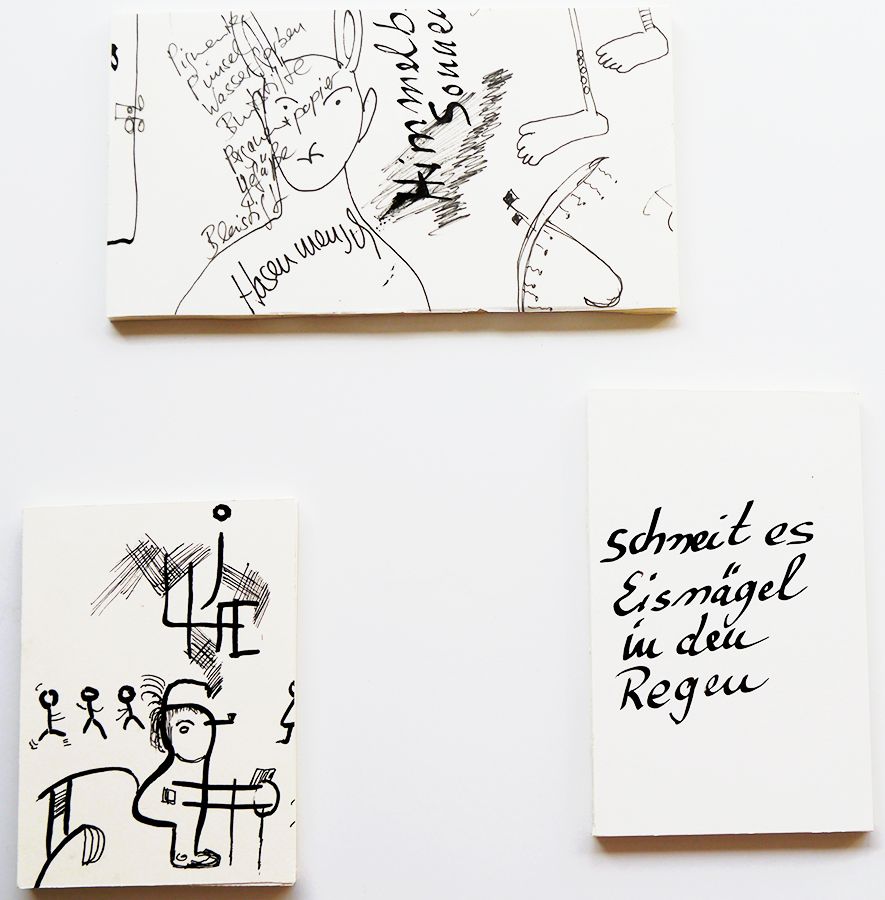 Pigmente
Pinsel
Wasserfarben
Buntstifte
Pergamentpapier
Bleistift
Hasenmensch
Himmelb
Sonne
schneit es
Eisnägel
in den
Regen